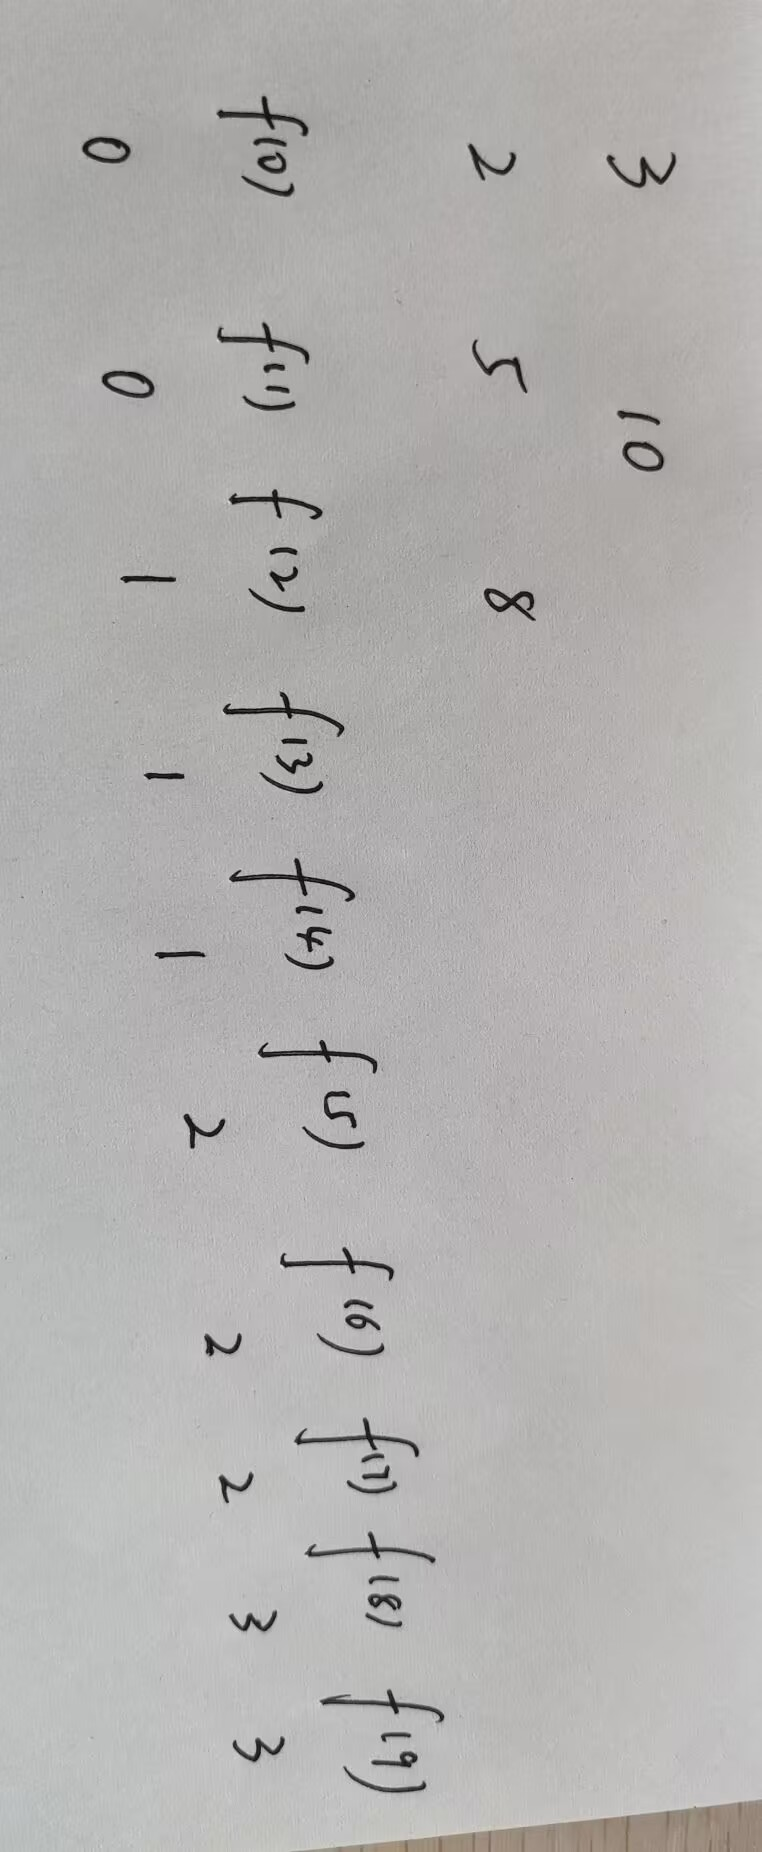 3 10
2 5 8
f(0) f(1) f(2) f(3) f(4) f(5) f(6) f(7) f(8) f(9)
0 0 1 1 1 2 2 2 3 3